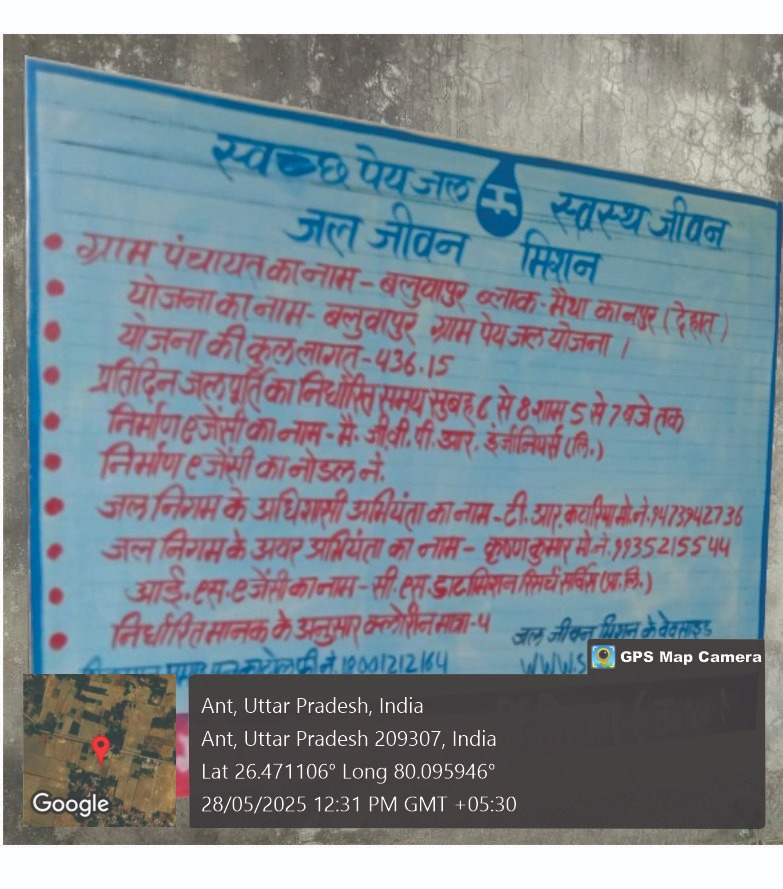 स्वच्छ पेयजल स्वस्थ जीवन
जल जीवन मिशन
ग्राम पंचायत का नाम - बलुवापुर ब्लाक - मैथा कानपुर (देहात)
योजना का नाम - बलुवापुर ग्राम पेयजल योजना ।
योजना की कुल लागत - 436.15
प्रतिदिन जलपूर्ति का निर्धारित समय सुबह 6 से 8 शाम 5 से 7 बजे तक
निर्माण एजेंसी का नाम - मै. जी.वी.पी.आर. इंजीनियर्स (लि.)
निर्माण एजेंसी का नोडल नं.
जल निगम के अधिशासी अभियंता का नाम - टी. आर. मो.नं. 9473942736
जल निगम के अवर अभियंता का नाम - कृष्ण कुमार मो.नं. 9935215544
आई. एस. एजेंसी का नाम - सी. एस. डाटामिशन रिसर्च सर्विस (प्रा. लि.)
निर्धारित मानक के अनुसार क्लोरीन मात्रा - 4
जल जीवन मिशन के वेवसाइड
नं. 18001212164 WWW.S
GPS Map Camera
Ant, Uttar Pradesh, India
Ant, Uttar Pradesh 209307, India
Lat 26.471106° Long 80.095946°
28/05/2025 12:31 PM GMT +05:30
Google